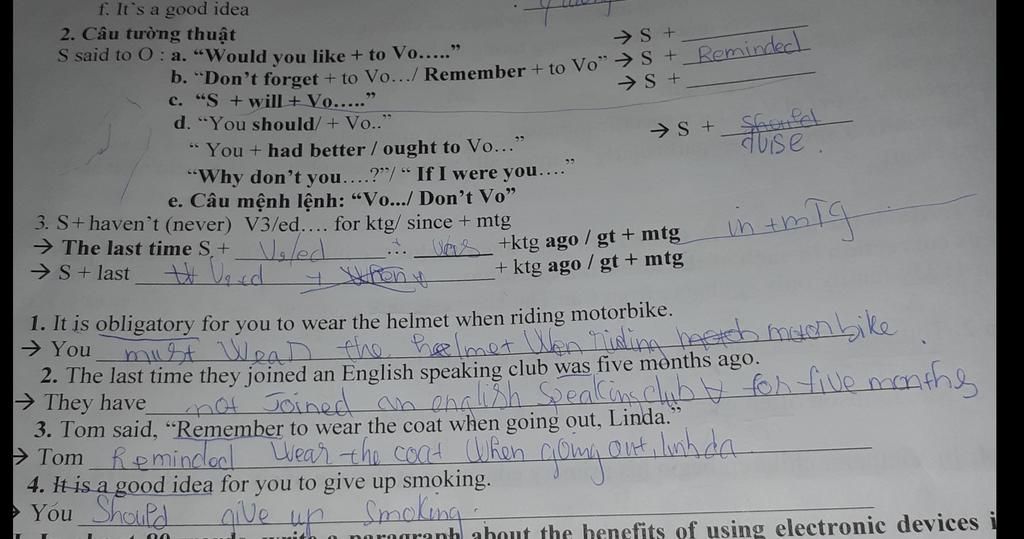 f. It's a good idea
2. Câu tường thuật
S said to O : a. “Would you like + to Vo…..” → S +
b. “Don't forget + to Vo…/ Remember + to Vo” → S + Reminded
c. “S + will + Vo…..” → S +
d. “You should/ + Vo..” → S + should
“ You + had better / ought to Vo…”
“Why don't you….?”/ “ If I were you….”
e. Câu mệnh lệnh: “Vo.../ Don't Vo”
3. S+ haven't (never) V3/ed…. for ktg/ since + mtg
→ The last time S + V2/ed … was +ktg ago / gt + mtg in + mTg
→ S + last V2ed + + ktg ago / gt + mtg
1. It is obligatory for you to wear the helmet when riding motorbike.
→ You must wear the helmet Wen riding motorbike.
2. The last time they joined an English speaking club was five months ago.
→ They have not Joined an english Speaking club for five months
3. Tom said, “Remember to wear the coat when going out, Linda.”
→ Tom Reminded Wear the coat When going out, linhda
4. It is a good idea for you to give up smoking.
You Should give up Smoking.
a paragraph about the benefits of using electronic devices i